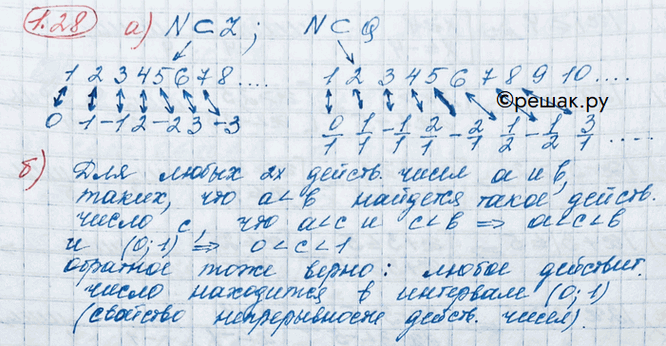 1.28 а) N ⊂ Z ; N ⊂ Q
1 2 3 4 5 6 7 8 .... 1 2 3 4 5 6 7 8 9 10 ....
©решак.ру
0 1 -1 2 -2 3 -3 0/1 1/1 -1/1 2/1 -2/1 1/2 -1/2 3/1 .....
б) Для любых 2х действ. чисел a и b,
таких, что a<b найдется такое действ.
число c, что a<c и c<b ⇒ a<c<b
и (0;1) ⇒ 0<c<1
обратное тоже верно: любое действит.
число находится в интервале (0;1)
(свойство непрерывности действ. чисел).